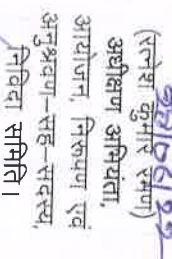 (रत्नेश कुमार रमण)
अधीक्षण अभियंता,
आयोजन, निरूपण एवं
अनुश्रवण–सह–सदस्य,
निविदा समिति।